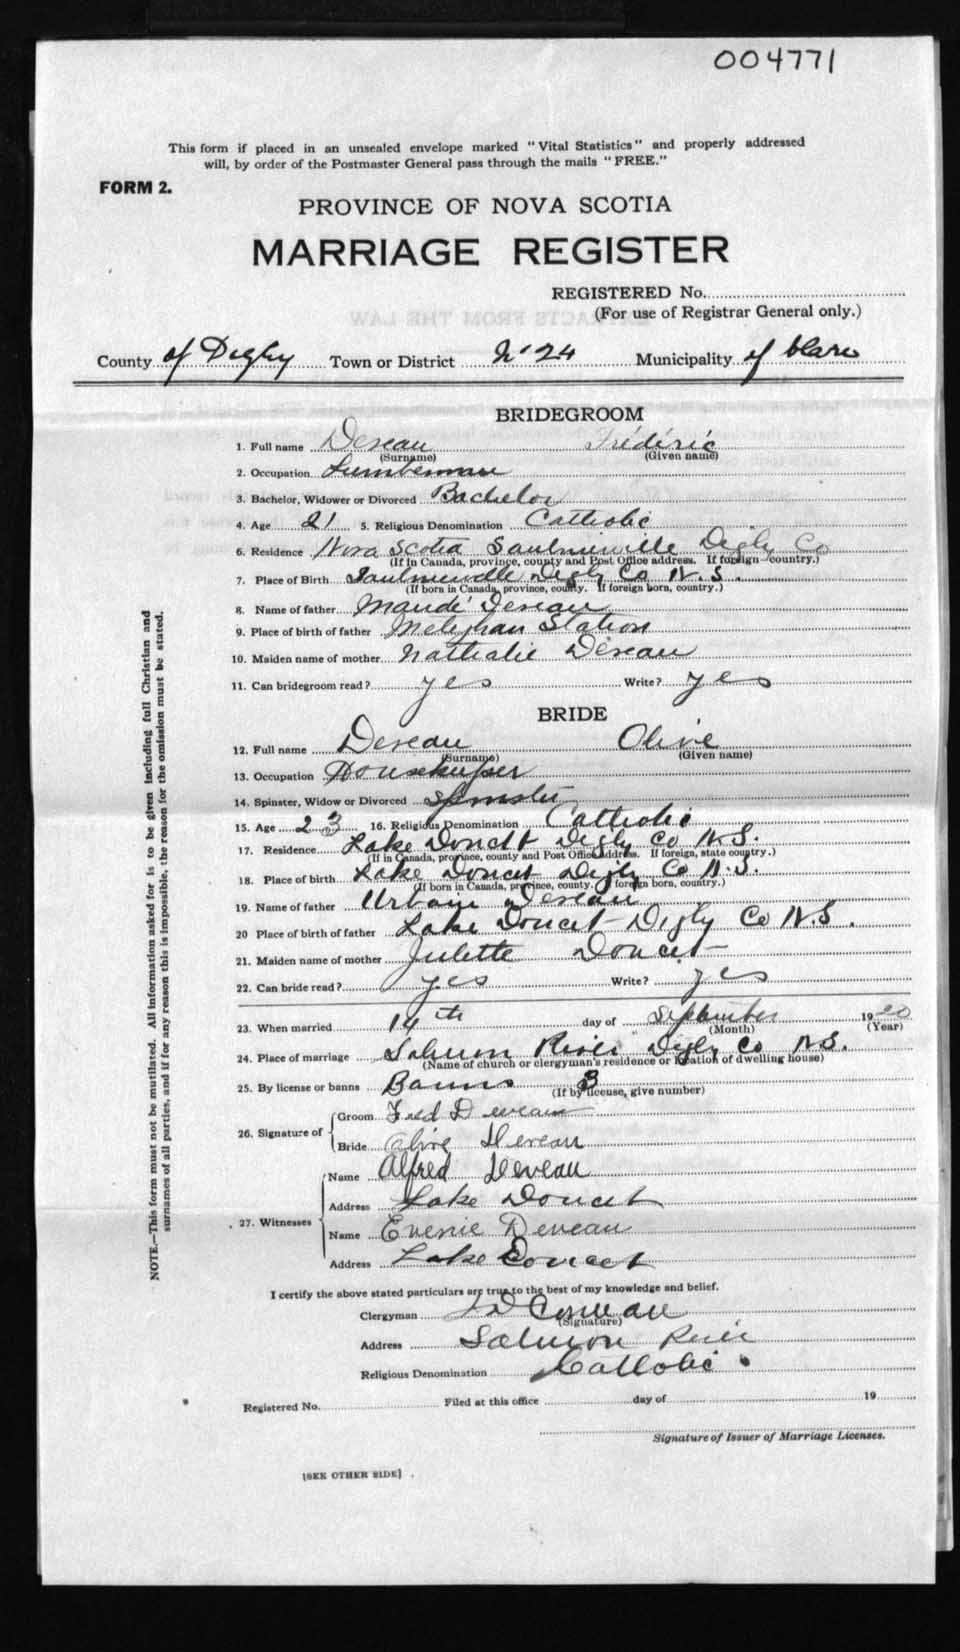 004771
This form if placed in an unsealed envelope marked "Vital Statistics" and properly addressed
will, by order of the Postmaster General pass through the mails "FREE."
FORM 2.
PROVINCE OF NOVA SCOTIA
MARRIAGE REGISTER
REGISTERED No.
(For use of Registrar General only.)
County of Digby Town or District No 24 Municipality of Clare
BRIDEGROOM
1. Full name Deveau Frédéric
(Surname) (Given name)
2. Occupation Lumberman
3. Bachelor, Widower or Divorced Bachelor
4. Age 21 5. Religious Denomination Catholic
6. Residence Nova Scotia Saulnierville Digby Co
(If in Canada, province, county and Post Office address. If foreign country.)
7. Place of Birth Saulnierville Digby Co N.S.
(If born in Canada, province, county. If foreign born, country.)
8. Name of father Mandé Deveau
9. Place of birth of father Meteghan Station
10. Maiden name of mother Nathalie Deveau
11. Can bridegroom read? yes Write? yes
BRIDE
12. Full name Deveau Olive
(Surname) (Given name)
13. Occupation Housekeeper
14. Spinster, Widow or Divorced Spinster
15. Age 23 16. Religious Denomination Catholic
17. Residence Lake Doucet Digby Co N.S.
(If in Canada, province, county and Post Office address. If foreign, state country.)
18. Place of birth Lake Doucet Digby Co N.S.
(If born in Canada, province, county. If foreign born, country.)
19. Name of father Urbain Deveau
20 Place of birth of father Lake Doucet Digby Co N.S.
21. Maiden name of mother Juliette Doucet
22. Can bride read? yes Write? yes
23. When married 14th day of September 1920
(Month) (Year)
24. Place of marriage Salmon River Digby Co N.S.
(Name of church or clergyman's residence or location of dwelling house)
25. By license or banns Banns 3
(If by license, give number)
26. Signature of
Groom Fred Deveau
Bride Olive Deveau
27. Witnesses
Name Alfred Deveau
Address Lake Doucet
Name Evenie Deveau
Address Lake Doucet
I certify the above stated particulars are true to the best of my knowledge and belief.
Clergyman Comeau
(Signature)
Address Salmon River
Religious Denomination Catholic
Registered No. Filed at this office day of 19
Signature of Issuer of Marriage Licenses.
[SEE OTHER SIDE]
NOTE.—This form must not be mutilated. All information asked for is to be given including full Christian and
surnames of all parties, and if for any reason this is impossible, the reason for the omission must be stated.